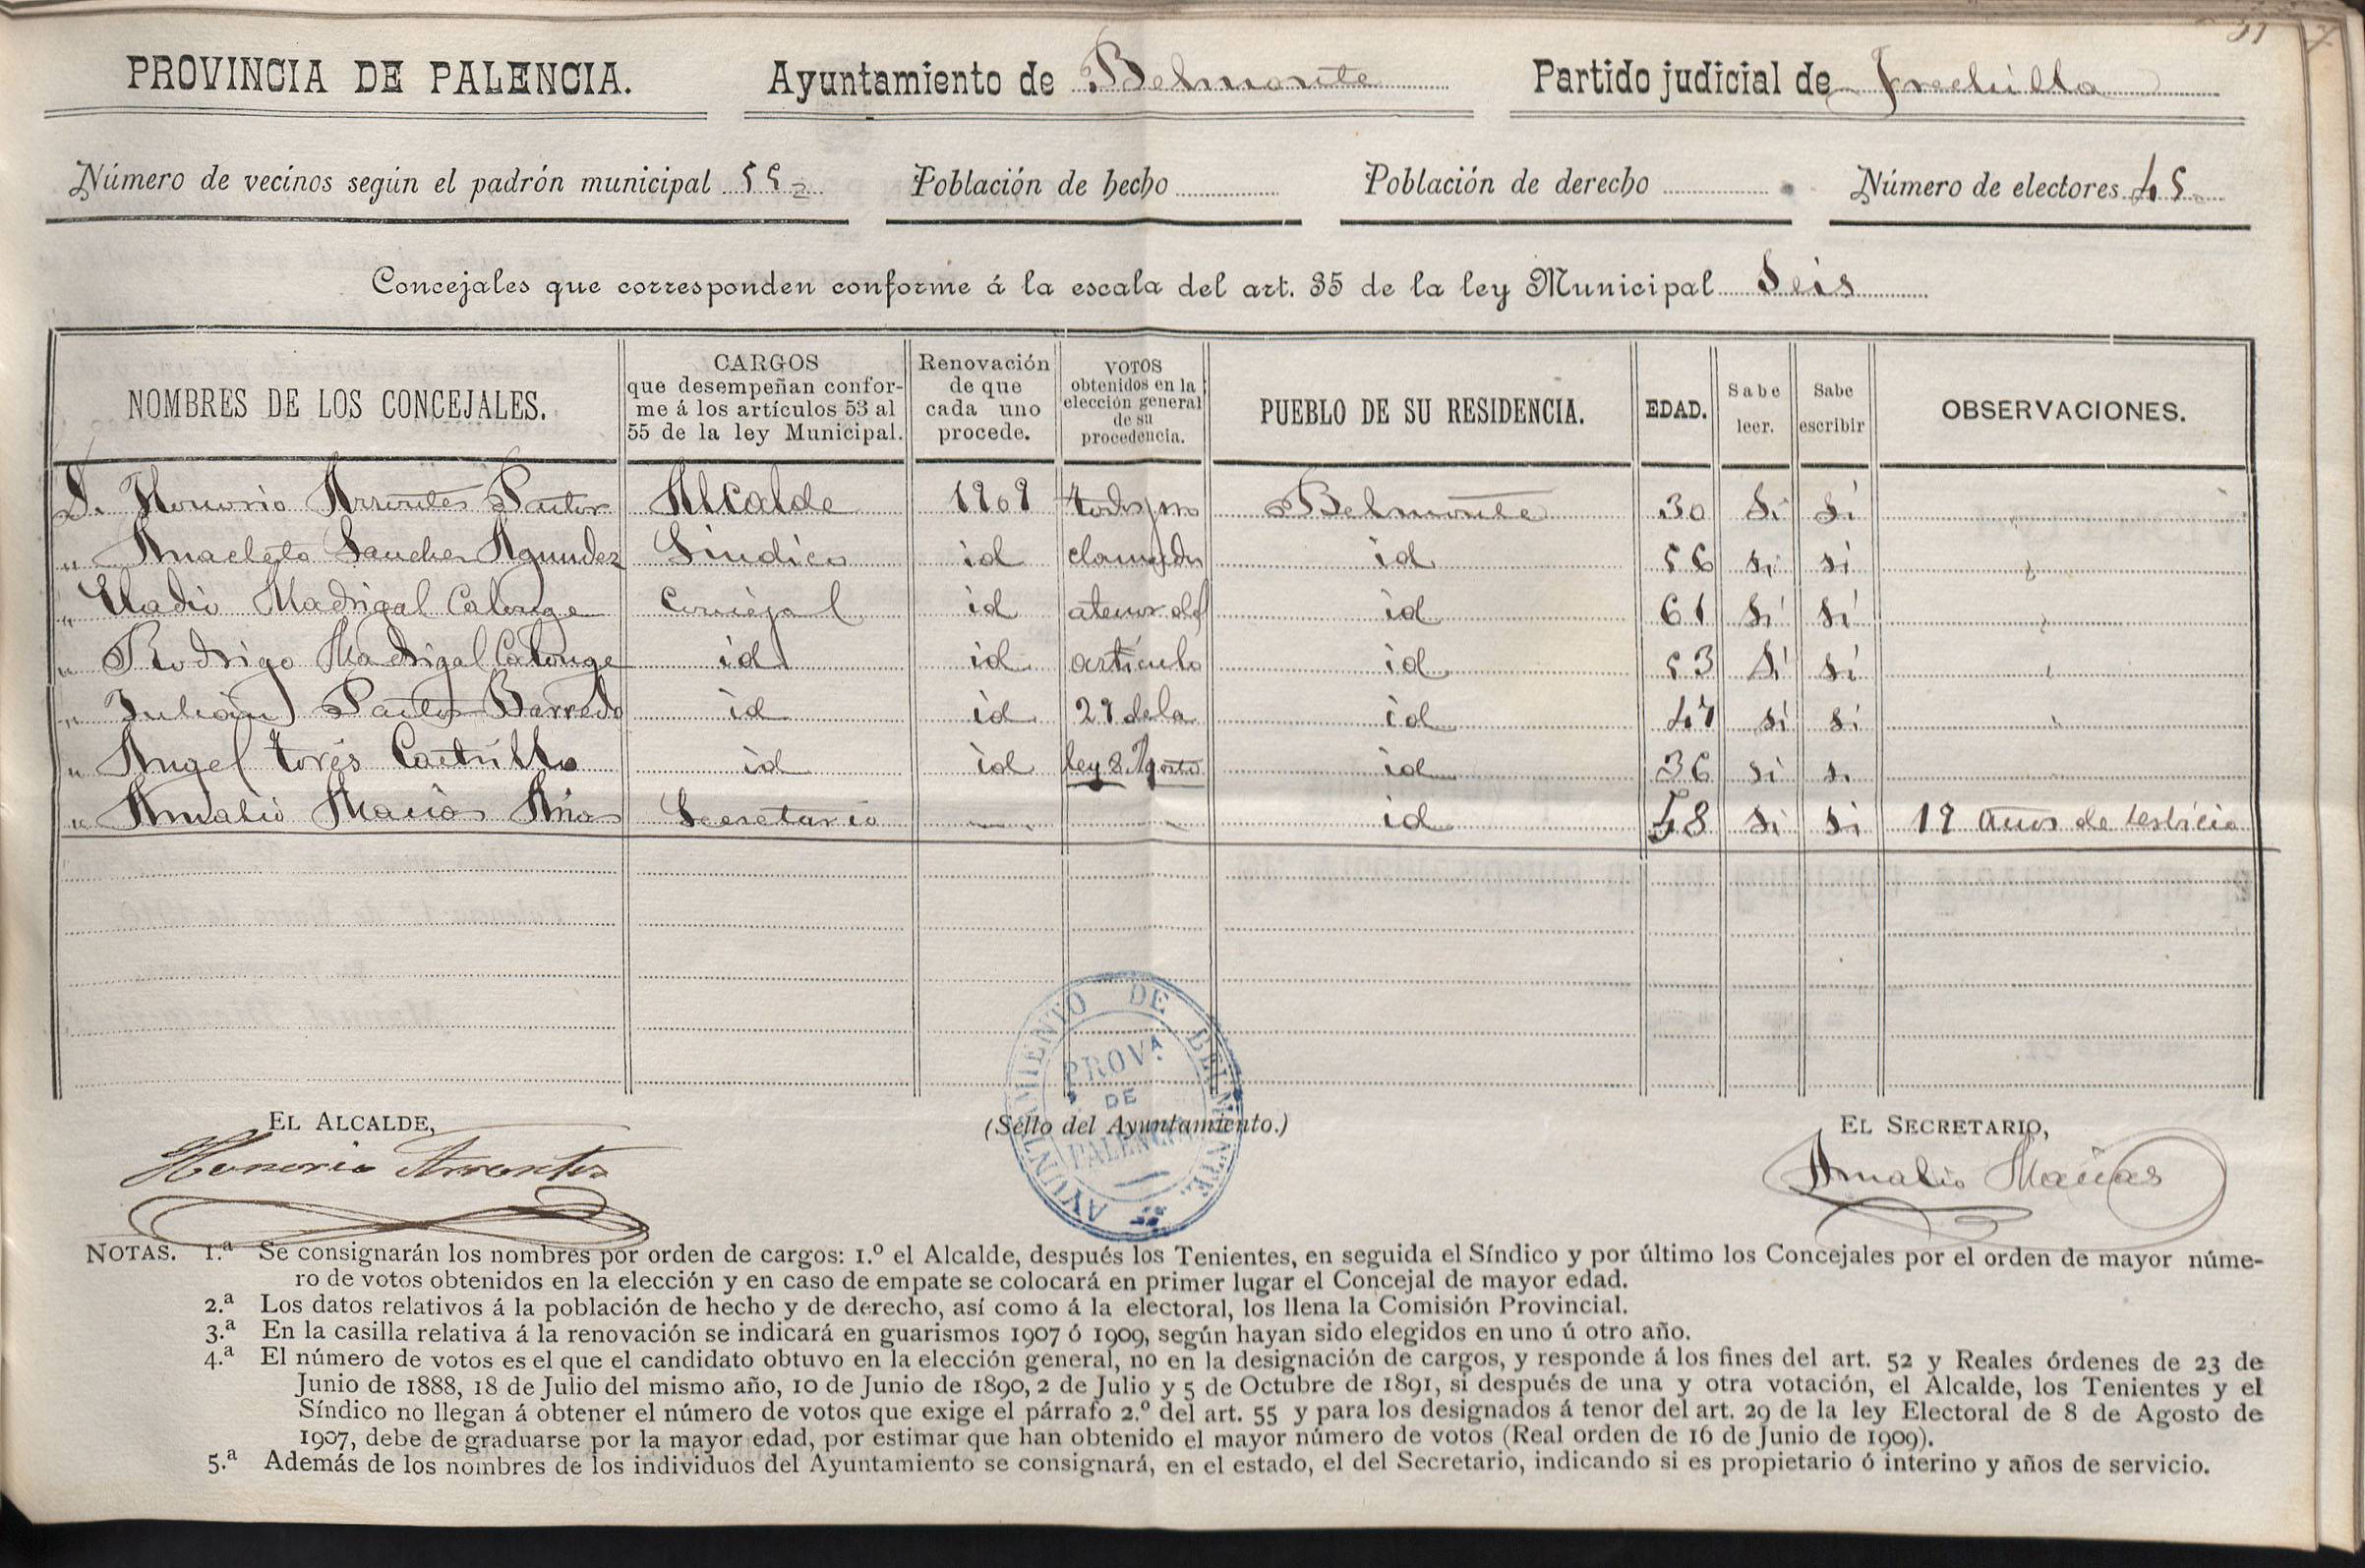 PROVINCIA DE PALENCIA. Ayuntamiento de Belmonte Partido judicial de Frechilla
Número de vecinos según el padrón municipal 55= Población de hecho Población de derecho Número de electores 45-
Concejales que corresponden conforme á la escala del art. 35 de la ley Municipal Seis
NOMBRES DE LOS CONCEJALES.
CARGOS
que desempeñan confor-
me á los artículos 53 al
55 de la ley Municipal.
Renovación
de que
cada uno
procede.
VOTOS
obtenidos en la
elección general
de su
procedencia.
PUEBLO DE SU RESIDENCIA.
EDAD.
Sabe
leer.
Sabe
escribir
OBSERVACIONES.
D. Honorio Arrontes Pastor Alcalde 1909 todos pro Belmonte 30 Si Sí
" Anacleto Sanchez Agundez Sindico id clamados id 56 si si
" Eladio Madrigal Calonge Concejal id atenor del id 61 Sí Sí
" Rodrigo Madrigal Calonge id id articulo id 53 Sí Sí
" Julian Pastor Barredo id id 29 de la id 47 si si
" Angel torés Castrillo id id ley 8 Agosto id 36 si si
" Amalio Macias Secretario id 58 si si 19 años de servicio
EL ALCALDE,
Honorio Arrontes
(Sello del Ayuntamiento.)
AYUNTAMIENTO DE BELMONTE
PROVA.
DE
PALENCIA
EL SECRETARIO,
Amalio Macias
NOTAS. 1.ª Se consignarán los nombres por orden de cargos: 1.º el Alcalde, después los Tenientes, en seguida el Síndico y por último los Concejales por el orden de mayor núme-
ro de votos obtenidos en la elección y en caso de empate se colocará en primer lugar el Concejal de mayor edad.
2.ª Los datos relativos á la población de hecho y de derecho, así como á la electoral, los llena la Comisión Provincial.
3.ª En la casilla relativa á la renovación se indicará en guarismos 1907 ó 1909, según hayan sido elegidos en uno ú otro año.
4.ª El número de votos es el que el candidato obtuvo en la elección general, no en la designación de cargos, y responde á los fines del art. 52 y Reales órdenes de 23 de
Junio de 1888, 18 de Julio del mismo año, 10 de Junio de 1890, 2 de Julio y 5 de Octubre de 1891, si después de una y otra votación, el Alcalde, los Tenientes y el
Síndico no llegan á obtener el número de votos que exige el párrafo 2.º del art. 55 y para los designados á tenor del art. 29 de la ley Electoral de 8 de Agosto de
1907, debe de graduarse por la mayor edad, por estimar que han obtenido el mayor número de votos (Real orden de 16 de Junio de 1909).
5.ª Además de los nombres de los individuos del Ayuntamiento se consignará, en el estado, el del Secretario, indicando si es propietario ó interino y años de servicio.